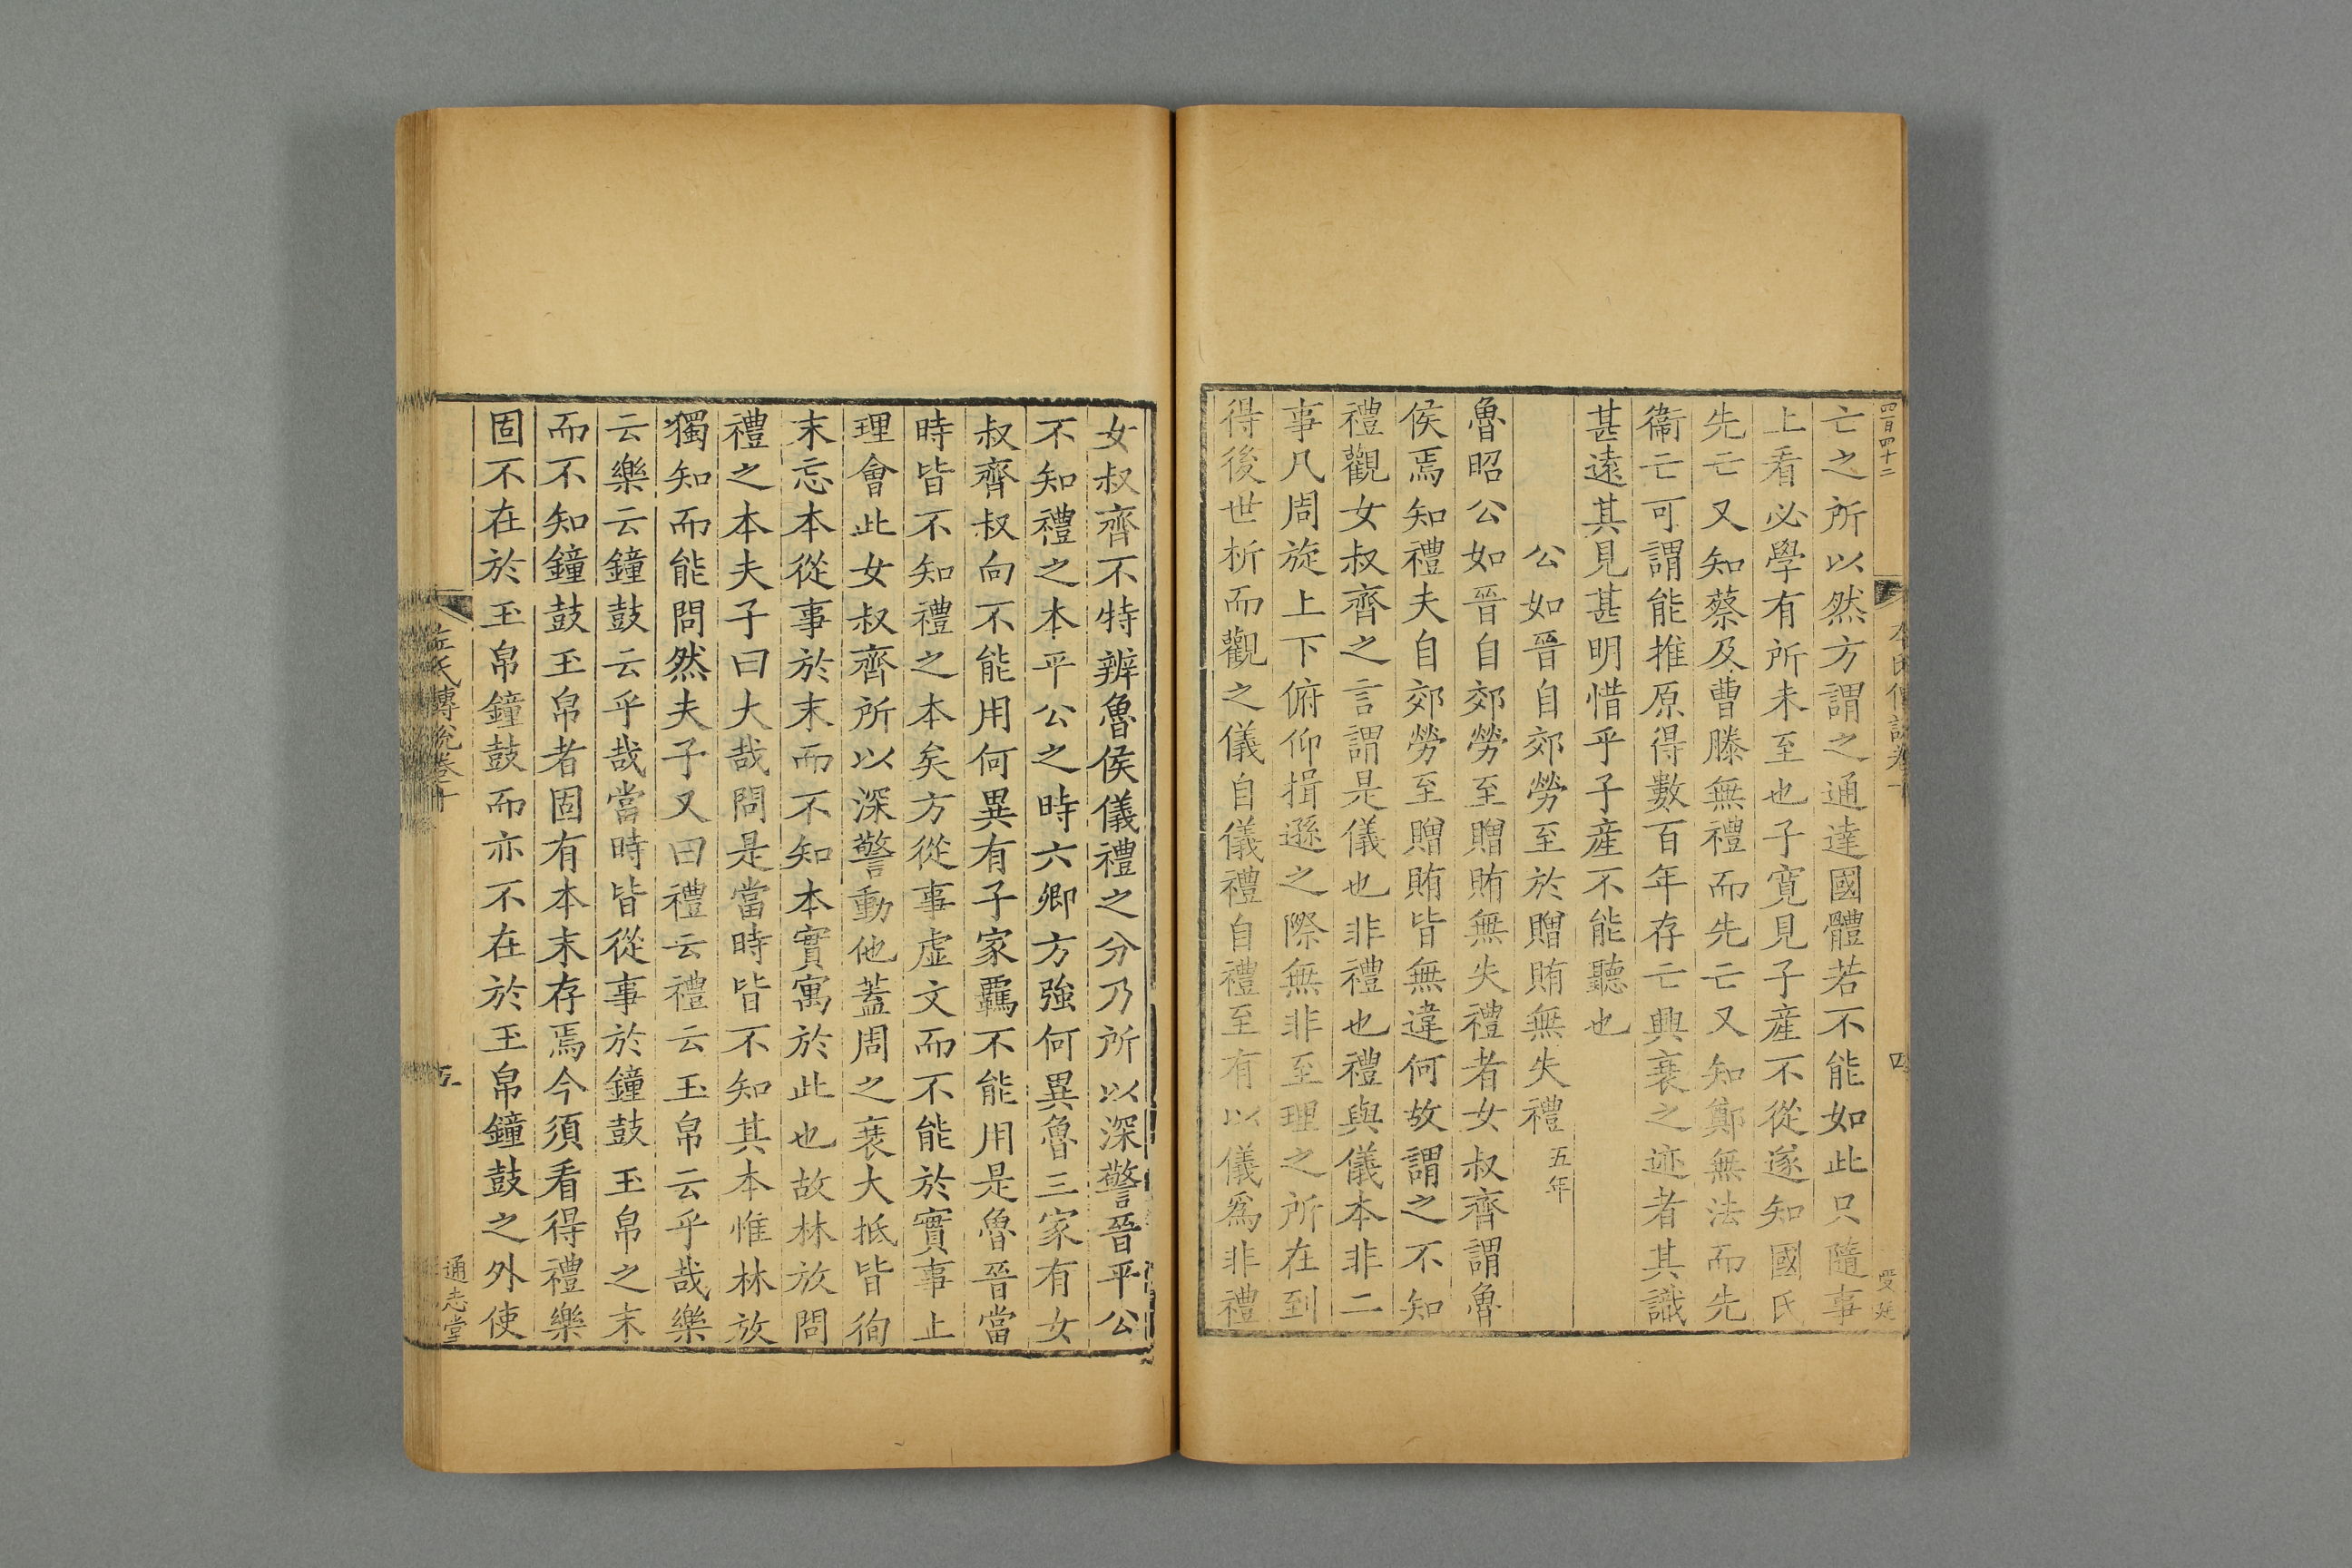 四百四十二
亡之所以然方謂之通達國體若不能如此只隨事
上看必學有所未至也子寬見子產不從遂知國氏
先亡又知蔡及曹滕無禮而先亡又知鄭無法而先
衞亡可謂能推原得數百年存亡興衰之迹者其識
甚遠其見甚明惜乎子產不能聽也
公如晉自郊勞至於贈賄無失禮五年
魯昭公如晉自郊勞至贈賄無失禮者女叔齊謂魯
侯焉知禮夫自郊勞至贈賄皆無違何故謂之不知
禮觀女叔齊之言謂是儀也非禮也禮與儀本非二
事凡周旋上下俯仰揖遜之際無非至理之所在到
得後世析而觀之儀自儀禮自禮至有以儀爲非禮
女叔齊不特辨魯侯儀禮之分乃所以深警晉平公
不知禮之本平公之時六卿方強何異魯三家有女
叔齊叔向不能用何異有子家羈不能用是魯晉當
時皆不知禮之本矣方從事虛文而不能於實事止
理會此女叔齊所以深警動他蓋周之衰大抵皆徇
末忘本從事於末而不知本實寓於此也故林放問
禮之本夫子曰大哉問是當時皆不知其本惟林放
獨知而能問然夫子又曰禮云禮云玉帛云乎哉樂
云樂云鐘鼓云乎哉當時皆從事於鐘鼓玉帛之末
而不知鐘鼓玉帛者固有本末存焉今須看得禮樂
固不在於玉帛鐘鼓而亦不在於玉帛鐘鼓之外使
左氏傳說卷十
五
通志堂